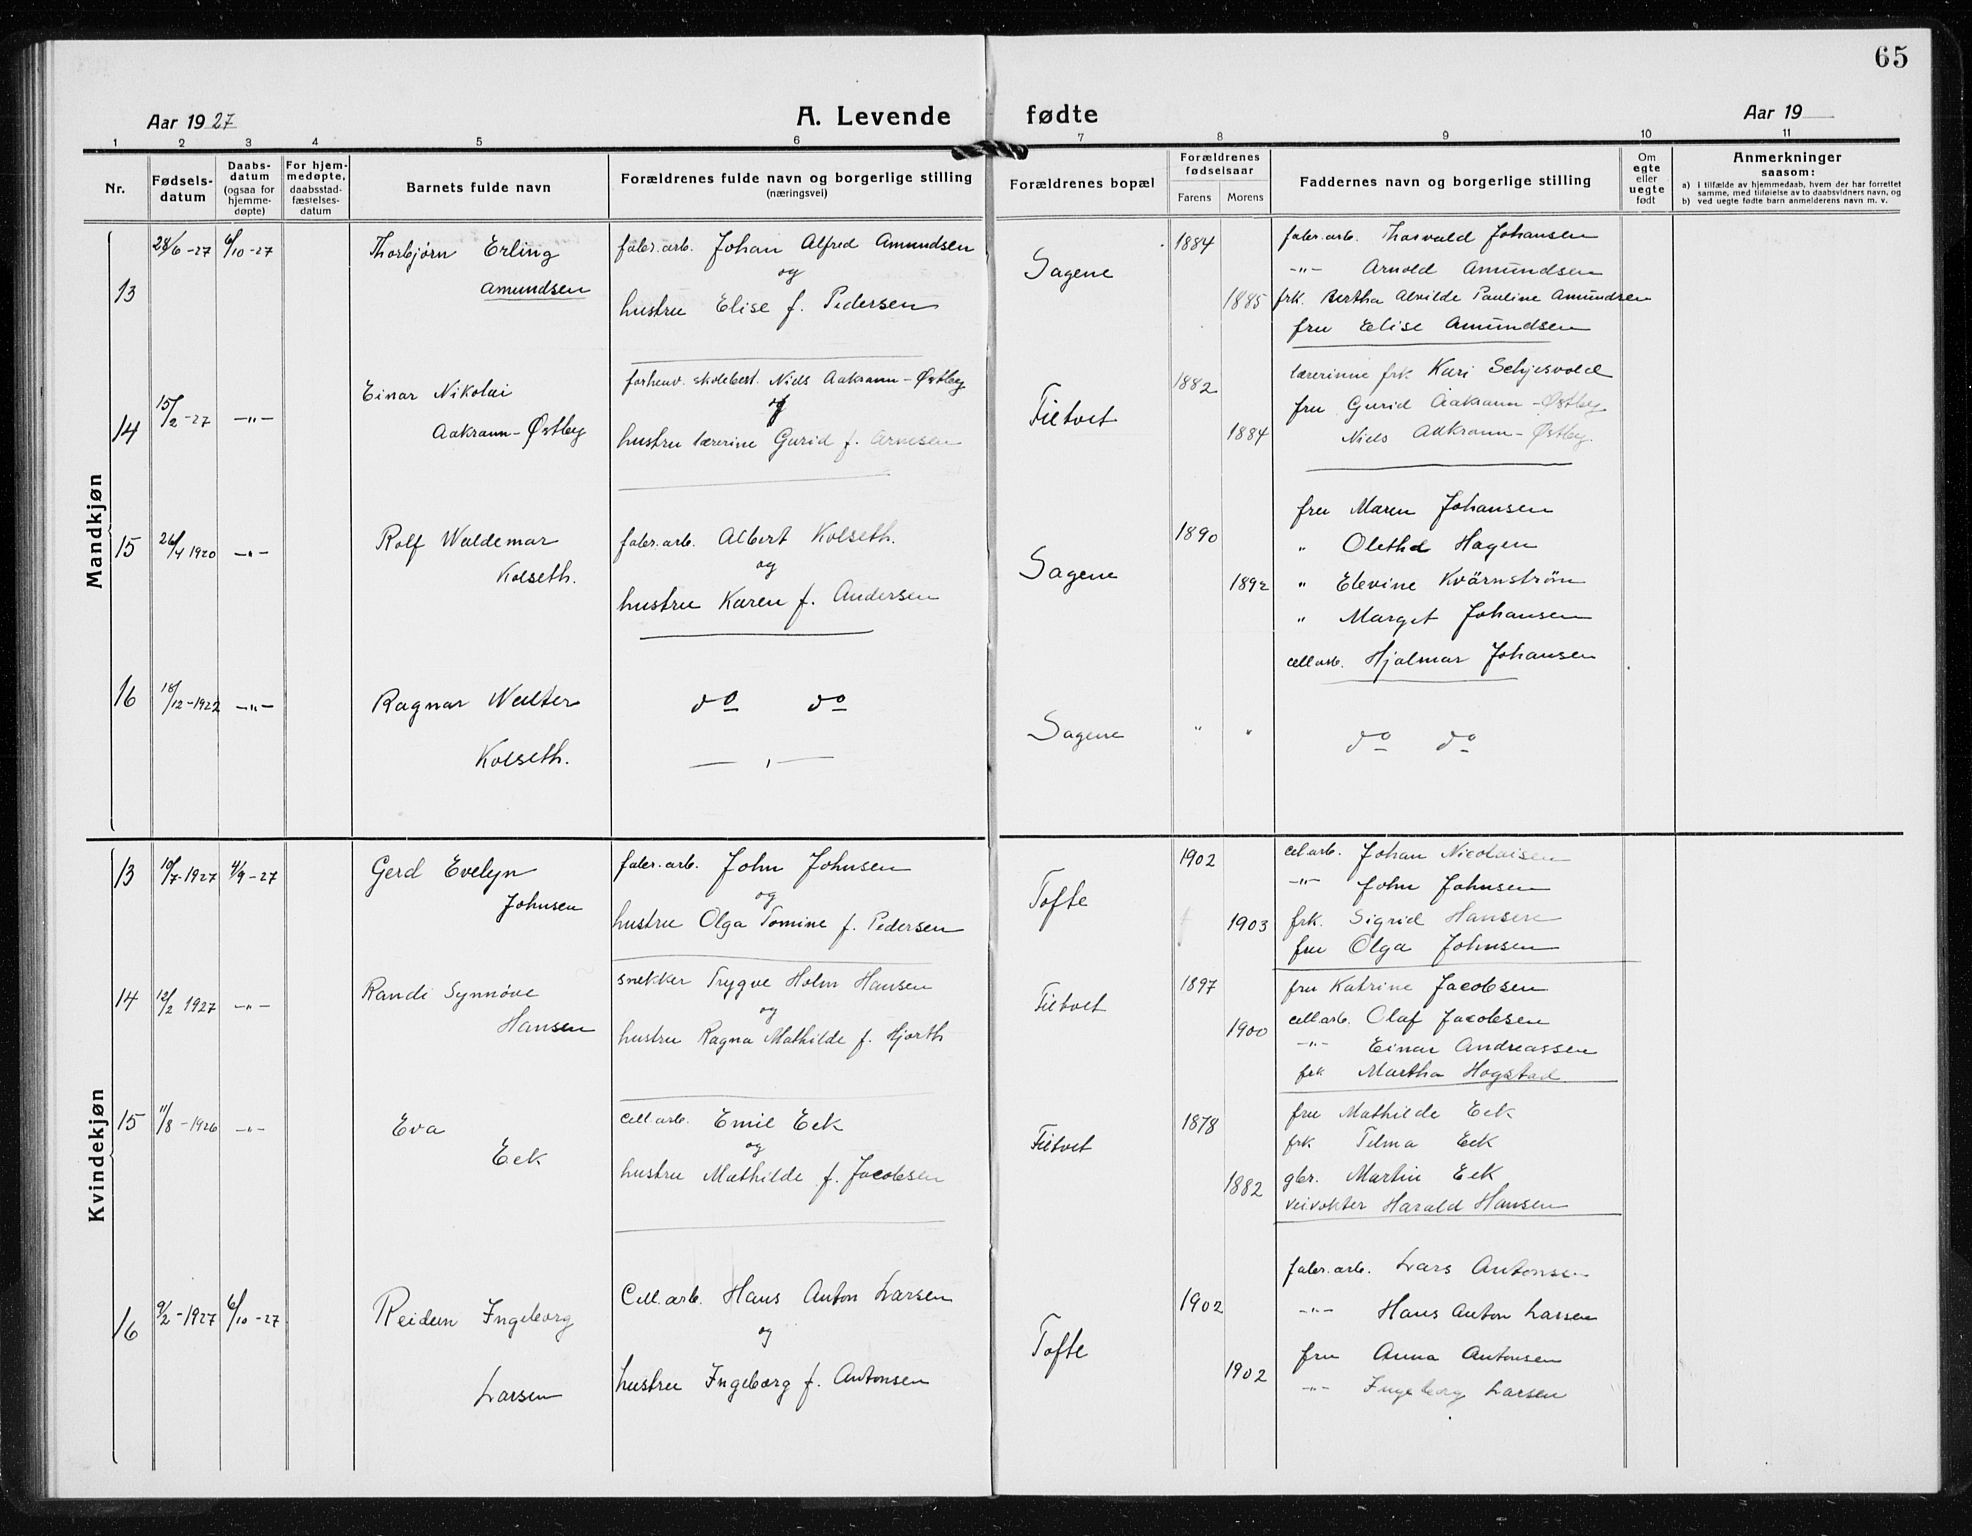 65
Aar 1927
A. Levende fødte
Aar 19
1 2 3 4 5 6 7 8 9 10 11
Nr.
Fødsels-
datum
Daabs-
datum
(ogsaa for
hjemme-
døpte)
For hjem-
medøpte,
daabsstad-
fæstelses-
datum
Barnets fulde navn
Forældrenes fulde navn og borgerlige stilling
(næringsvei)
Forældrenes bopæl
Forældrenes
fødselsaar
Farens Morens
Faddernes navn og borgerlige stilling
Om
egte
eller
uegte
født
Anmerkninger
saasom:
a) i tilfælde av hjemmedaab, hvem der har forrettet
samme, med tilføielse av to daabsvidners navn, og
b) ved uegte fødte barn anmelderens navn m. v.
Mandkjøn
13
28/6-27 6/10-27
Thorbjørn Erling
Amundsen
faber.arb. Johan Alfred Amundsen
og
hustru Elise f. Pedersen
Sagene
1884
1885
faber.arb. Thorvald Johansen
-"- Arnold Amundsen
frk. Bertha Alvilde Pauline Amundsen
fru Elise Amundsen
14
15/2-27 -"-
Einar Nikolai
Aakrann-Østby
forhenv. skolebest. Niels Aakrann-Østby
og
hustru lærerine Gurid f. Arnesen
Filtvet
1882
1884
lærerinne frk Kari Schjesvold
fru Gurid Aakrann-Østby
Niels Aakrann-Østby.
15
26/4 1920 -"-
Rolf Waldemar
Kolseth.
faber.arb. Albert Kolseth.
og
hustru Karen f. Andersen
Sagene
1890
1892
fru Maren Johansen
" Olethe Hagen
" Elevine Kvärnstrøm
" Marget Johansen
cell arb. Hjalmar Johansen
16
18/12-1922 -"-
Ragnar Walter
Kolseth.
do do
— " —
Sagene
" "
do do
Kvindekjøn
13
10/7-1927 4/9-27
Gerd Evelyn
Johnsen
faber.arb. John Johnsen
og
hustru Olga Tomine f. Pedersen
Tofte
1902
1903
cel.arb. Johan Nicolaisen
-"- John Johnsen
frk. Sigrid Hansen
fru Olga Johnsen
14
12/2 1927 -"-
Randi Synnöve
Hansen
snekker Trygve Holm Hansen
og
hustru Ragna Mathilde f. Hjorth
Filtvet
1897
1900
fru Katrine Jacobsen
cell.arb. Olaf Jacobsen
-"- Einar Andreassen
frk Martha Hogstad.
15
11/8-1926 -"-
Eva
Eek
cell.arb. Emil Eek
og
hustru Mathilde f. Jacobsen
Filtvet
1878
1882
fru Mathilde Eek
frk Telma Eek
gbr. Martin Eek
veivokter Harald Hansen
16
9/2-1927 6/10-27
Reidun Ingeborg
Larsen
Cell.arb. Hans Anton Larsen
og
hustru Ingeborg f. Antonsen
Tofte
1902
1902
faber.arb. Lars Antonsen
-"- Hans Anton Larsen
fru Anna Antonsen
-"- Ingeborg Larsen